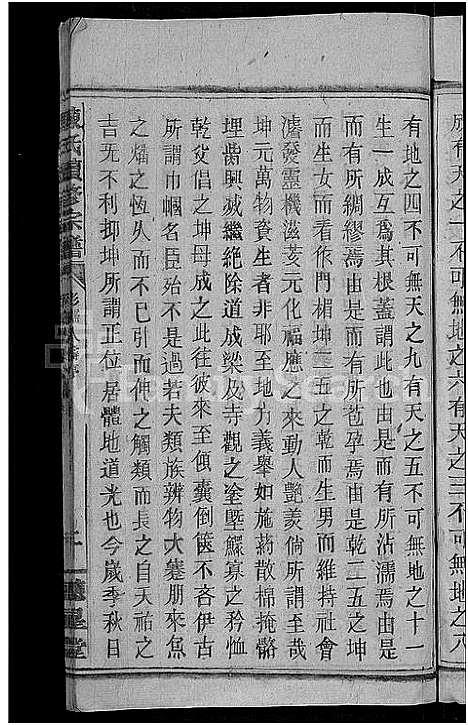 有地之四不可無天之九有天之五不可無地之十一
生一成互爲其根蓋謂此也由是而有所沾濡焉由是
而有所綢繆焉由是而有所苞孕焉由是乾二五之坤
而生女而看作門楣坤二五之乾而生男而維持社會
濬發靈機滋荄元化福應之來動人艷羨倘所謂至哉
坤元萬物資生者非耶至地方義舉如施葯散棉掩骼
埋胔興滅繼絶除道成梁及寺觀之塗塈鰥寡之矜恤
乾父倡之坤母成之此往彼來至傾囊倒篋不吝伊古
所謂巾幗名臣殆不是過若夫類族辨物大蹇朋來魚
之燔之恆久而已引而伸之觸類而長之自天祐之
吉无不利抑坤所謂正位居體地道光也今歲季秋日
陳氏續修宗譜
成有天之一不可無地之六有天之三不可無地之八